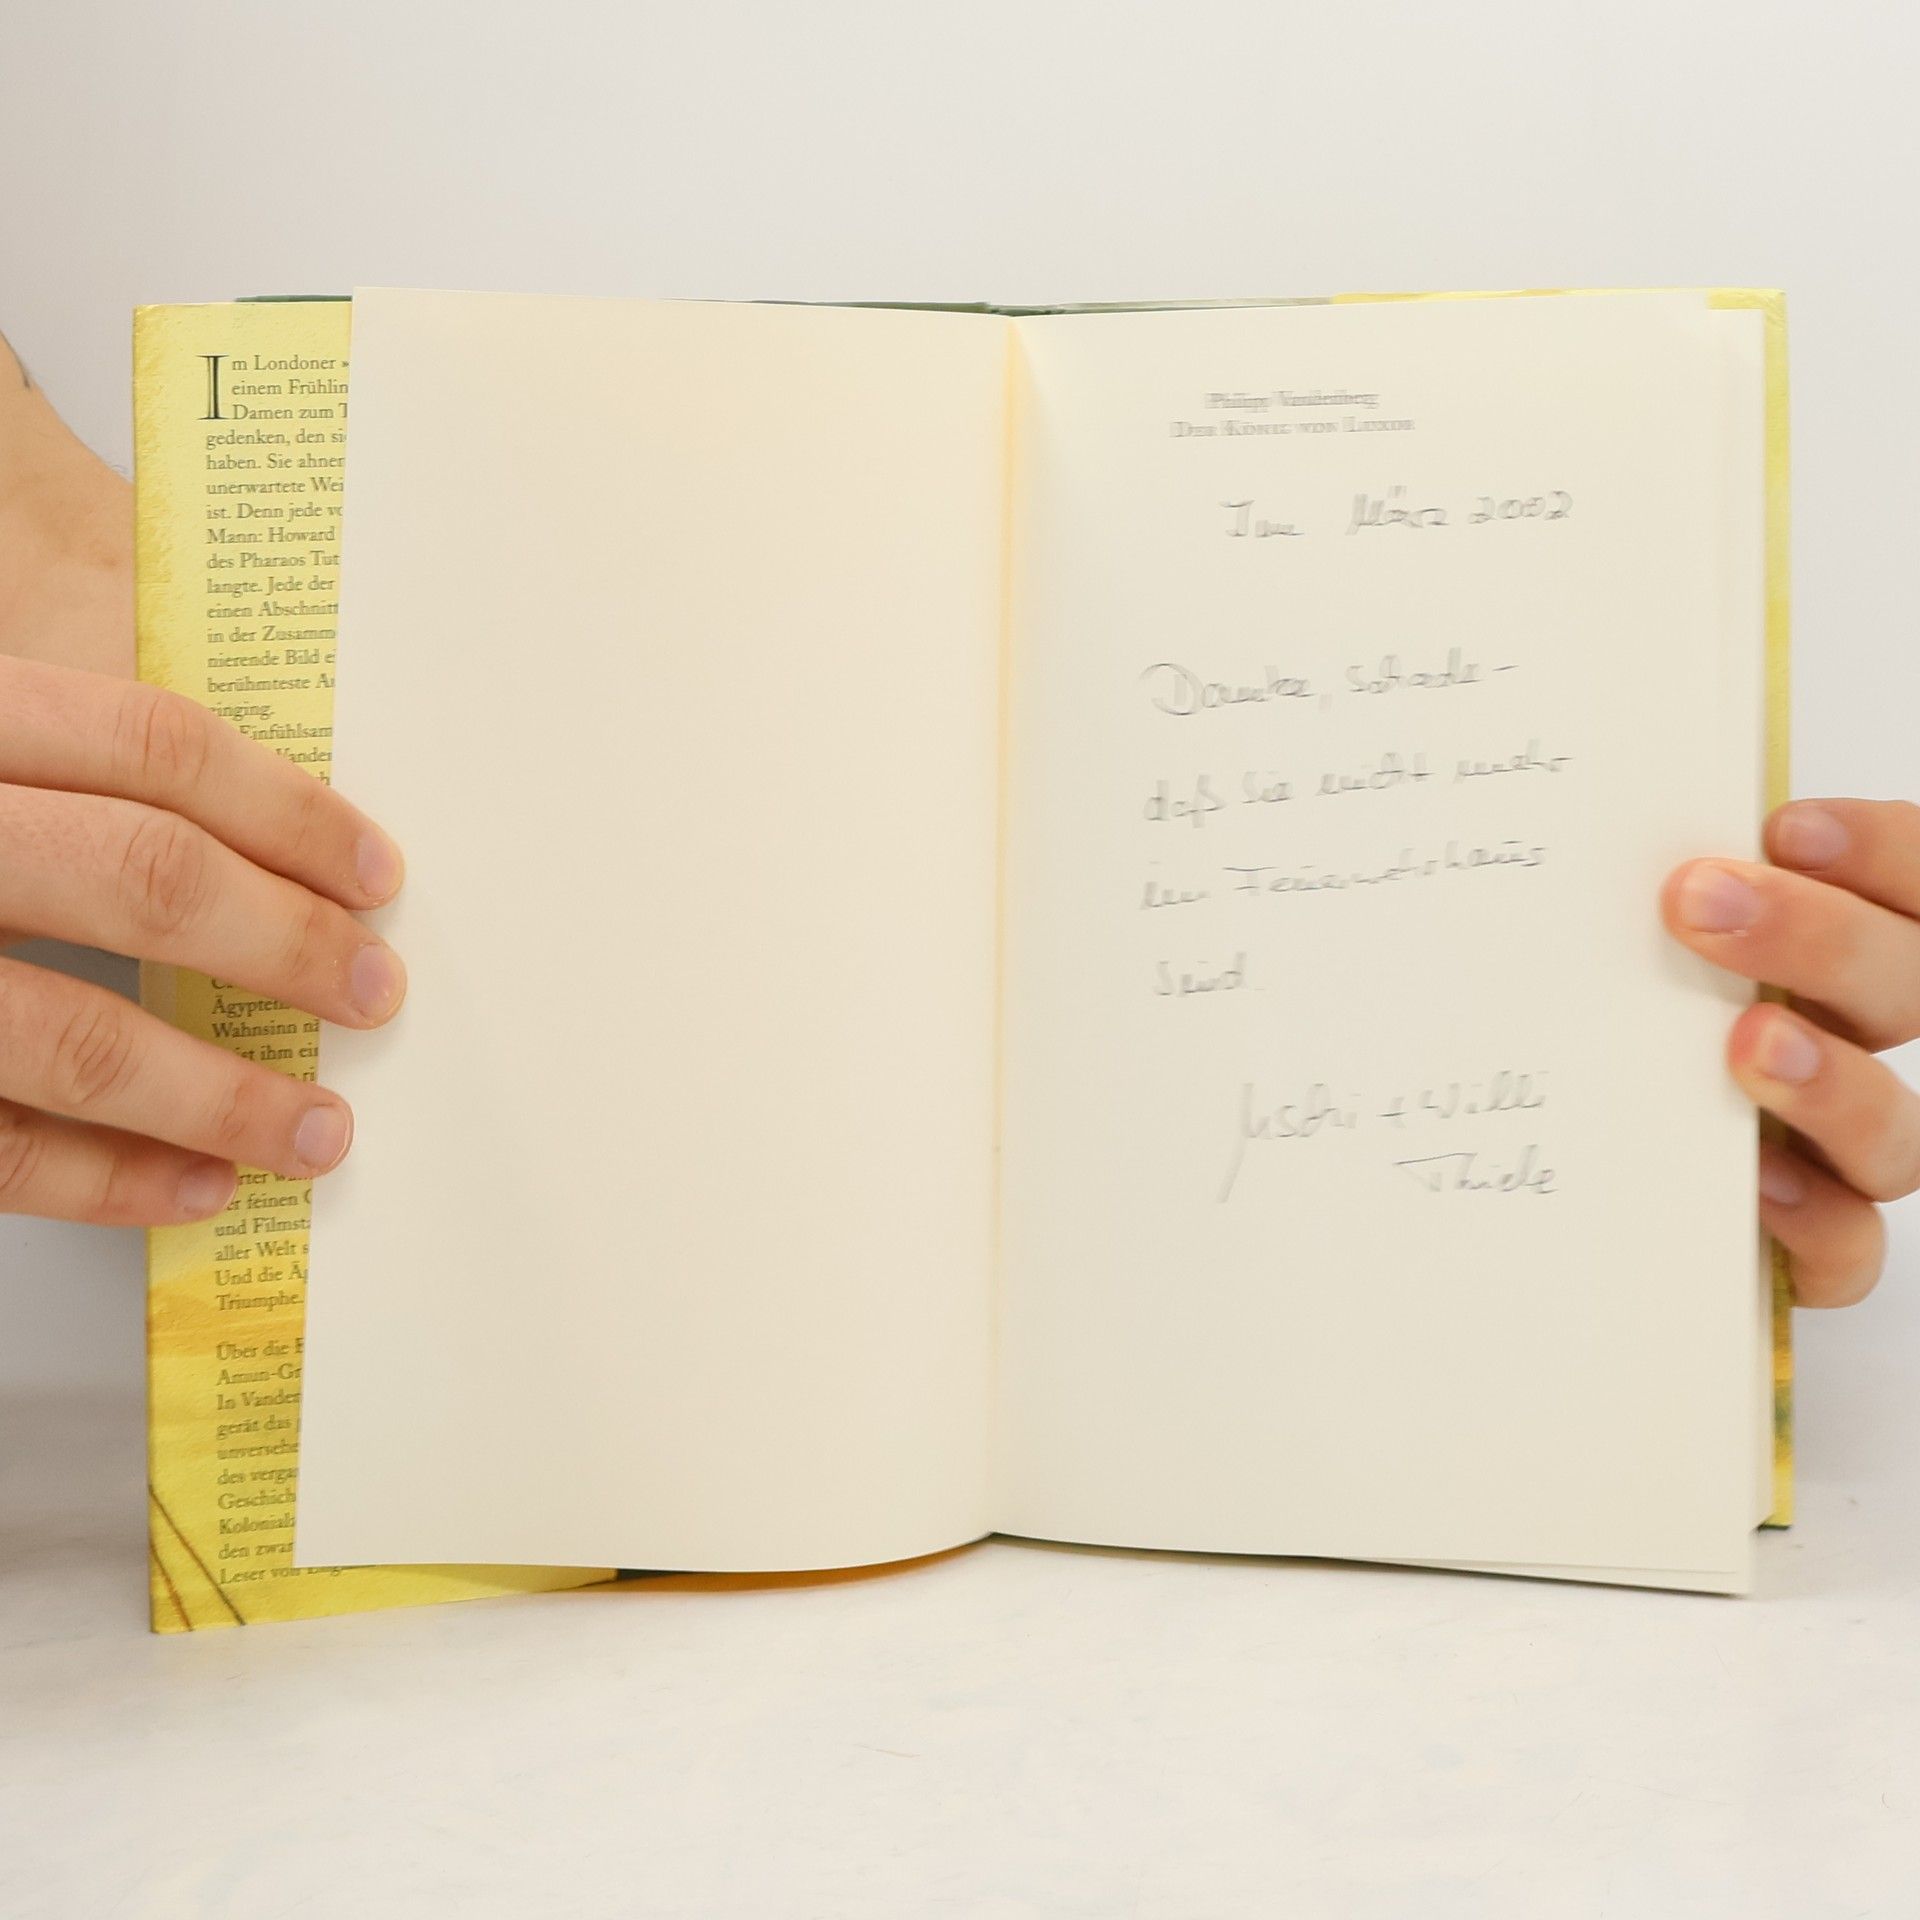 Im Londoner »
einem Frühlin
Damen zum T
gedenken, den si
haben. Sie ahner
unerwartete Wei
ist. Denn jede vo
Mann: Howard
des Pharaos Tut
langte. Jede der
einen Abschnitt
in der Zusamm
nierende Bild ei
berühmteste Ar
einging.
Einfühlsam
Vander
Ägypten
Wahnsinn nä
ist ihm ein
rter
er feinen G
und Filmsta
aller Welt s
Und die Äg
Triumphe.
Über die E
Amun-Gr
In Vanden
gerät das
unversehe
des verga
Geschich
Kolonial
den zwar
Leser von
Philipp Vandenberg
DER KÖNIG VON LUXOR
Im März 2002
Danke, schade-
daß Sie nicht mehr
im
sind.
+ Willi
Thiele